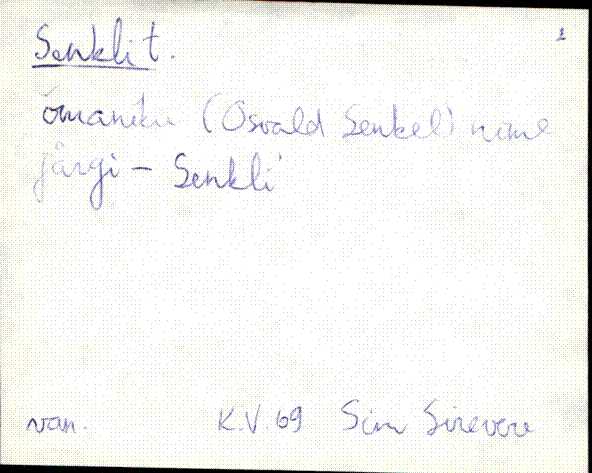 Senkli t. 2
omaniku (Osvald Senkel) nime
järgi – Senkli
van. K.V. 69 Sim Sirevere